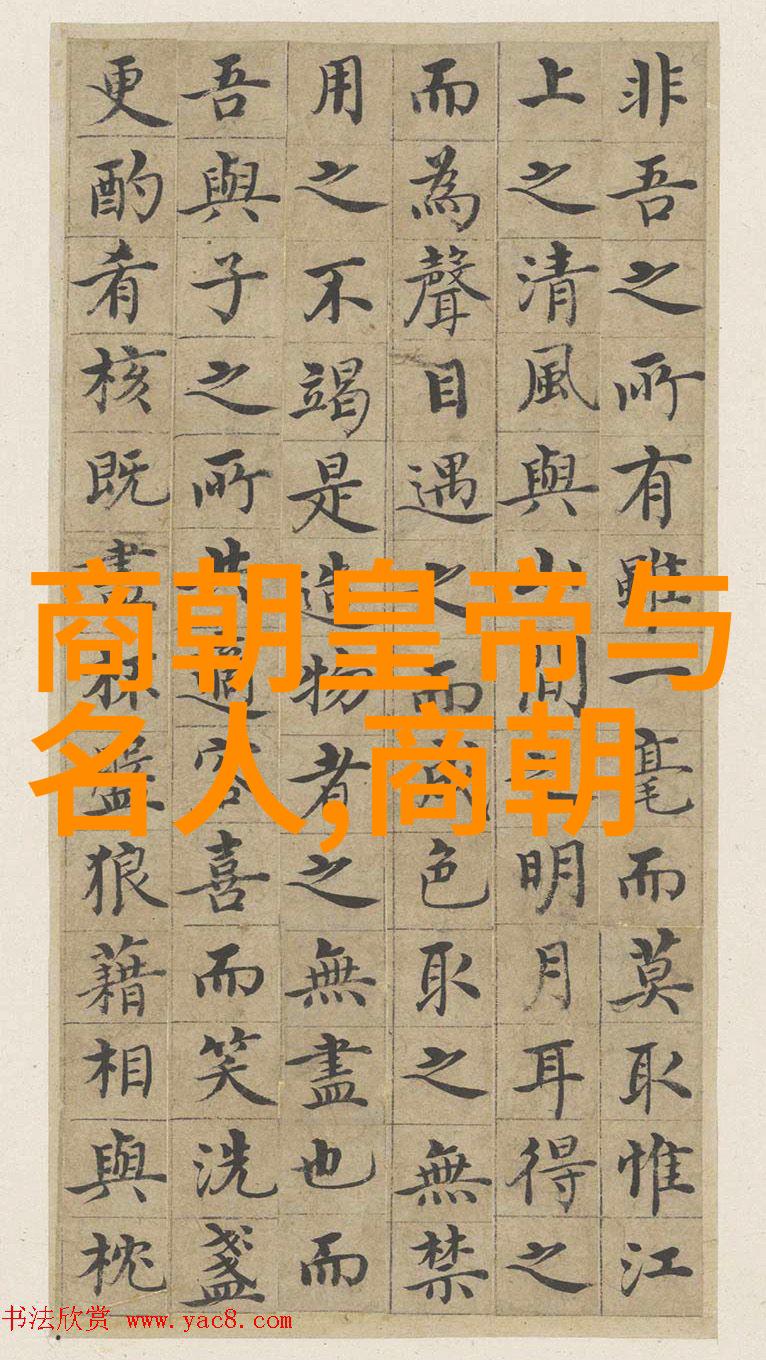 非吾之所有雖一毫而莫取惟江
上之清風與山間之明月耳得之
而為聲目遇之而成色取之無禁
用之不竭是造物者之無盡也而
吾與子之所共適客喜而笑洗盞
更酌肴核既盡杯盤狼藉相與枕
商朝皇帝与
名人,商朝
书法欣赏 www.yac8.com